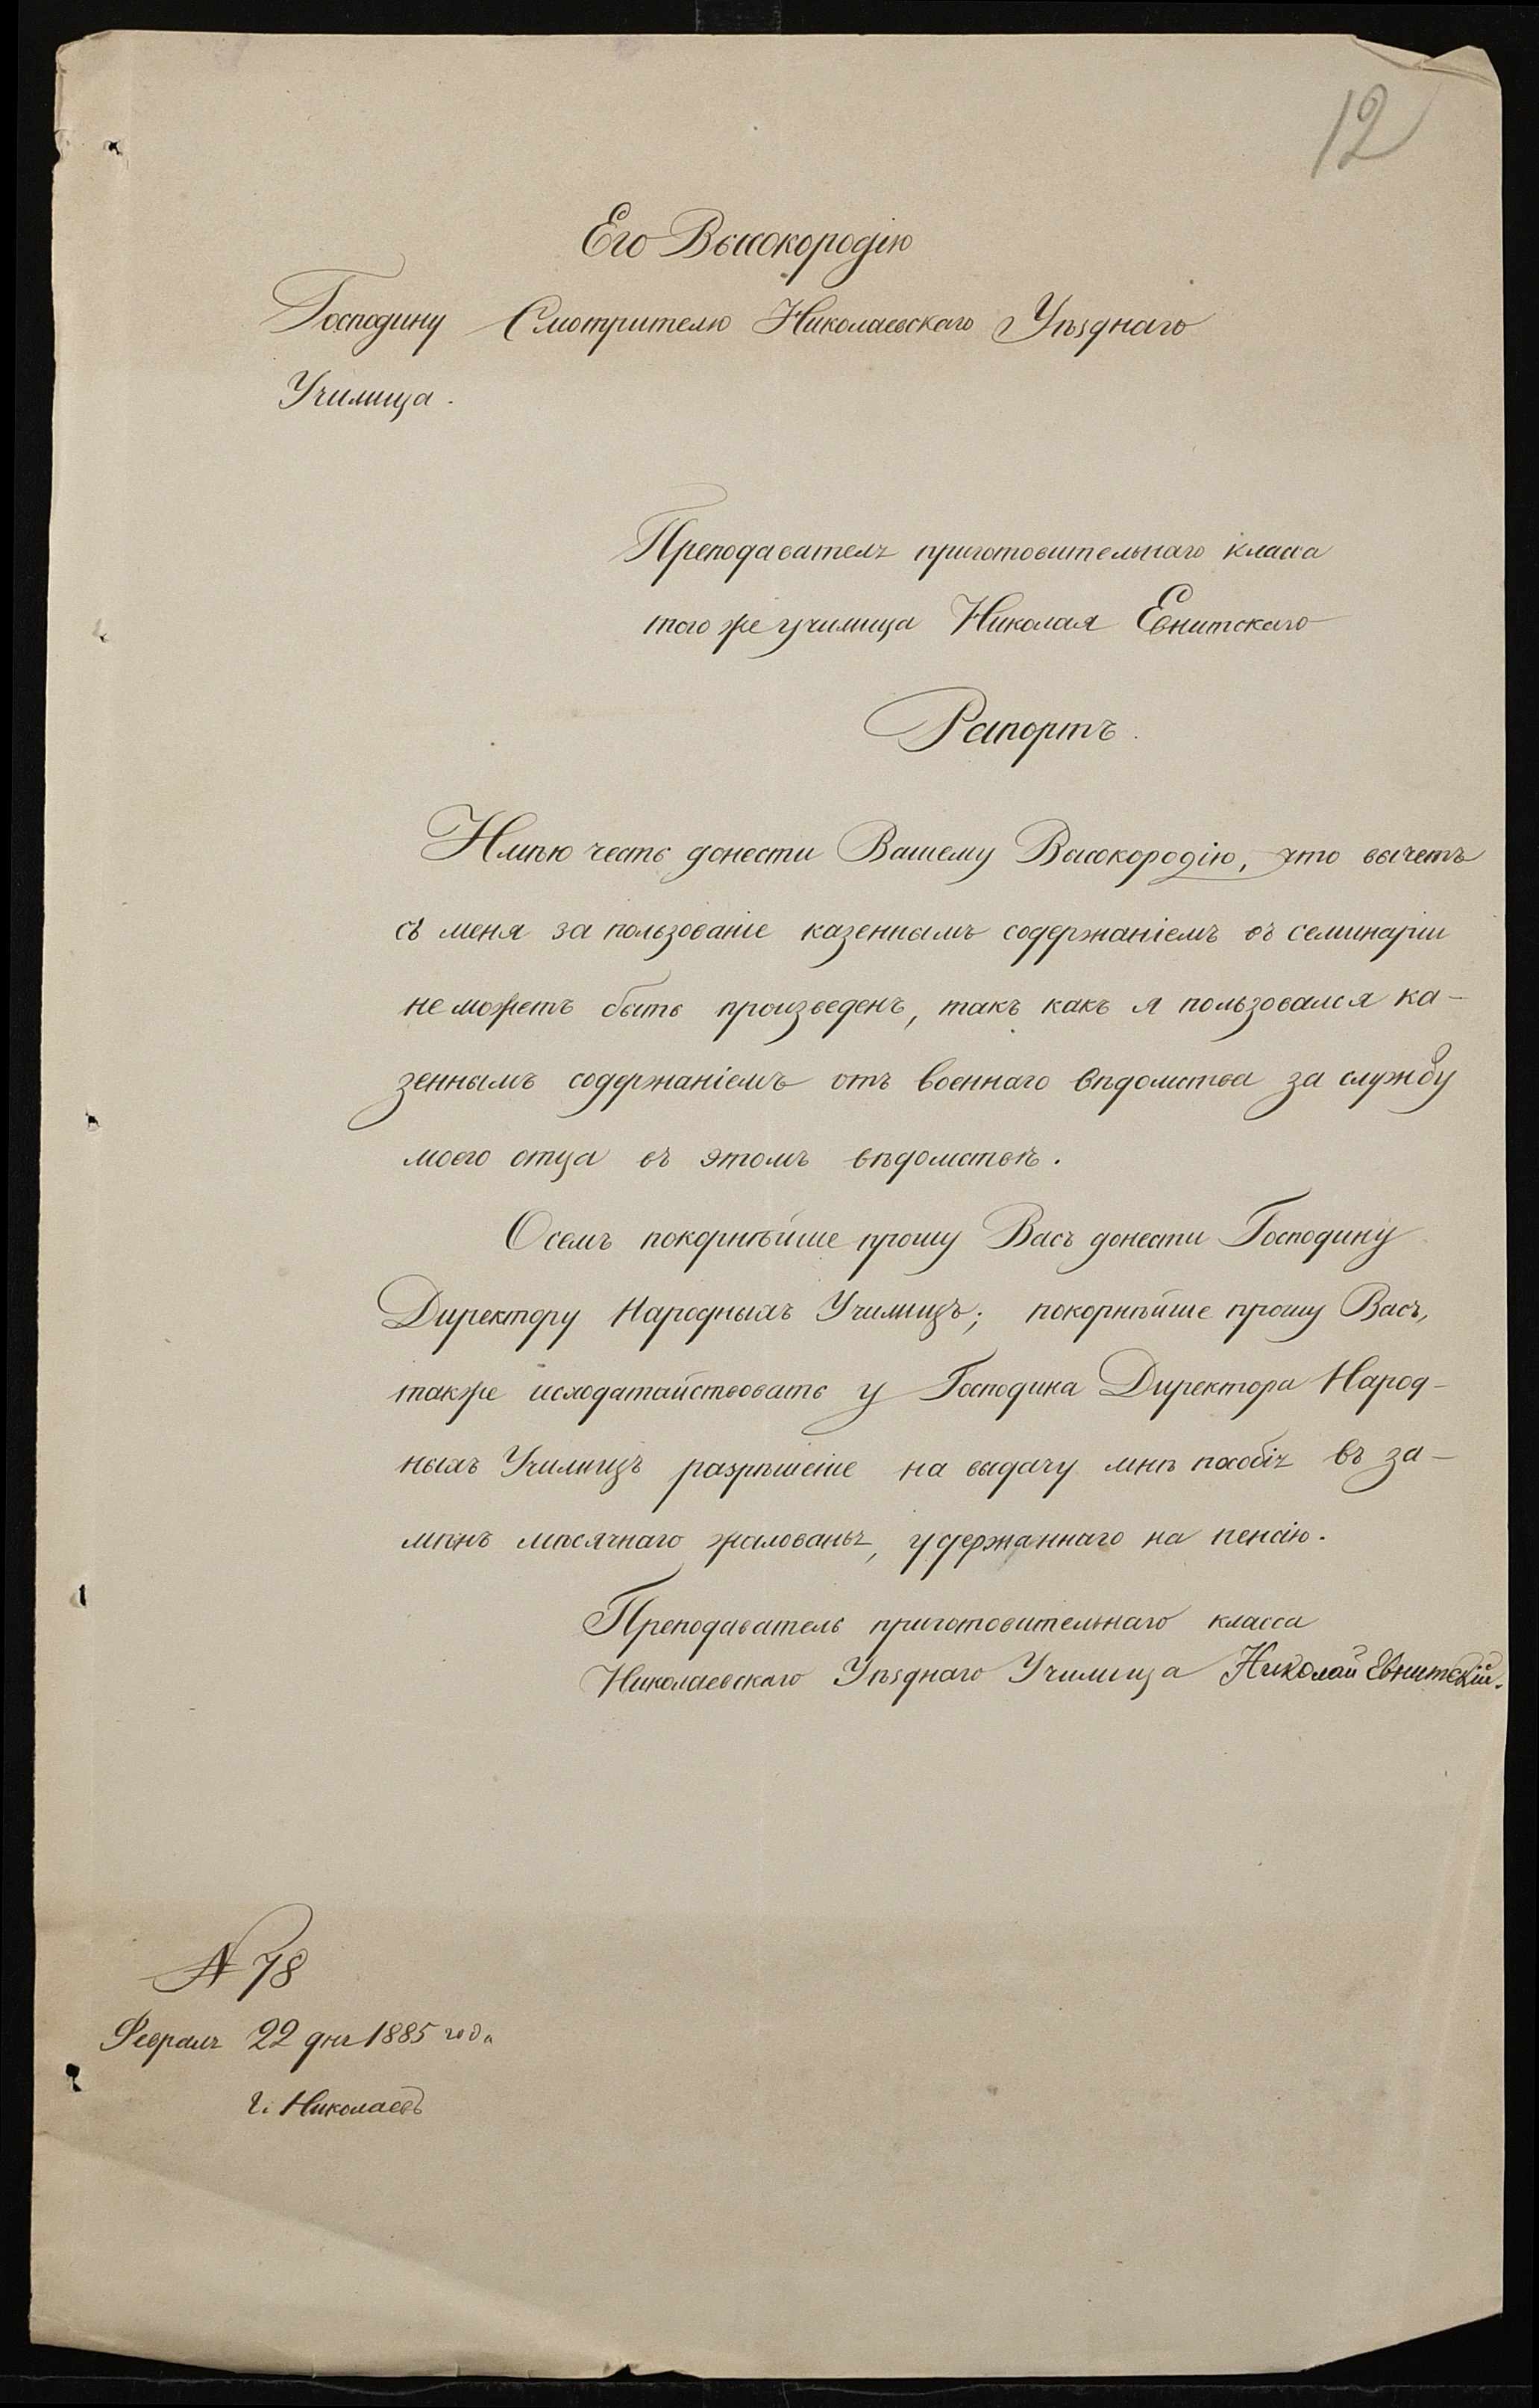 12
Его Высокородію
Господину Смотрителю Николаевскаго Уѣзднаго
Училища.
Преподавателя приготовительнаго класса
того же училища Николая Евнитскаго
Рапортъ.
Имѣю честь донести Вашему Высокородію, что вычетъ
съ меня за пользованіе казеннымъ содержаніемъ въ семинаріи
не можетъ быть произведенъ, такъ какъ я пользовался ка-
зеннымъ содержаніемъ отъ военнаго вѣдомства за службу
моего отца въ этомъ вѣдомствѣ.
О семъ покорнѣйше прошу Васъ донести Господину
Директору Народныхъ Училищъ; покорнѣйше прошу Васъ,
также исходатайствовать у Господина Директора Народ-
ныхъ Училищъ разрѣшеніе на выдачу мнѣ пособія въ за-
мѣнъ мѣсячнаго жалованья, удержаннаго на пенсію.
Преподаватель приготовительнаго класса
Николаевскаго Уѣзднаго Училища Николай Евнитскій.
№ 78
Февраля 22 дня 1885 года
г. Николаевъ